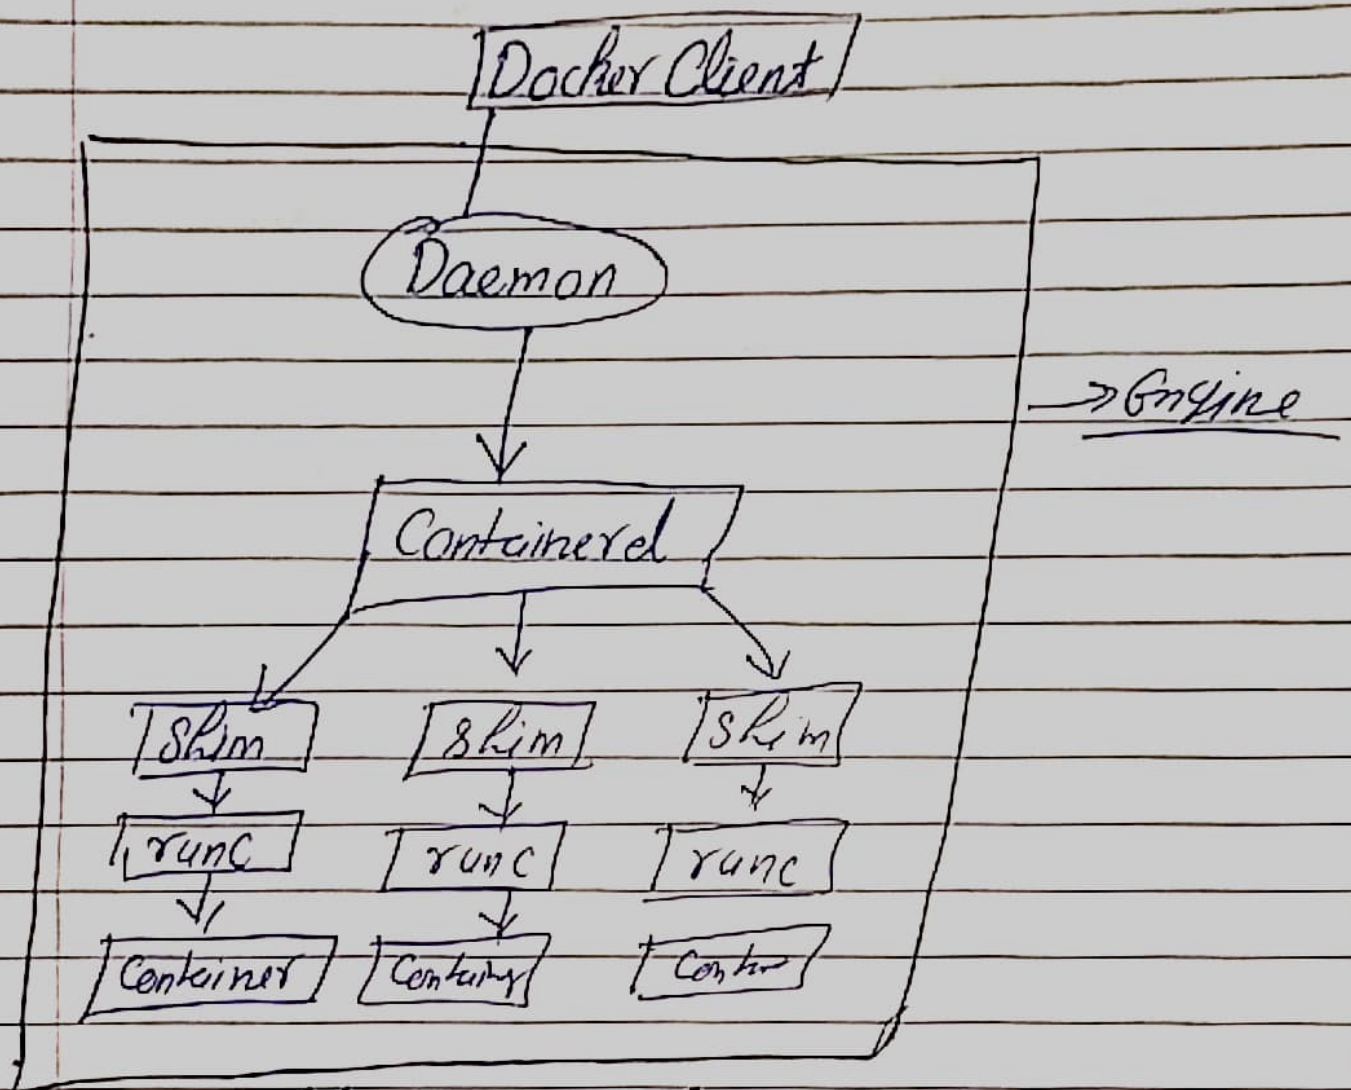 Docker Client
Daemon
→ Engine
Containerd
shim shim shim
runc runc runc
Container